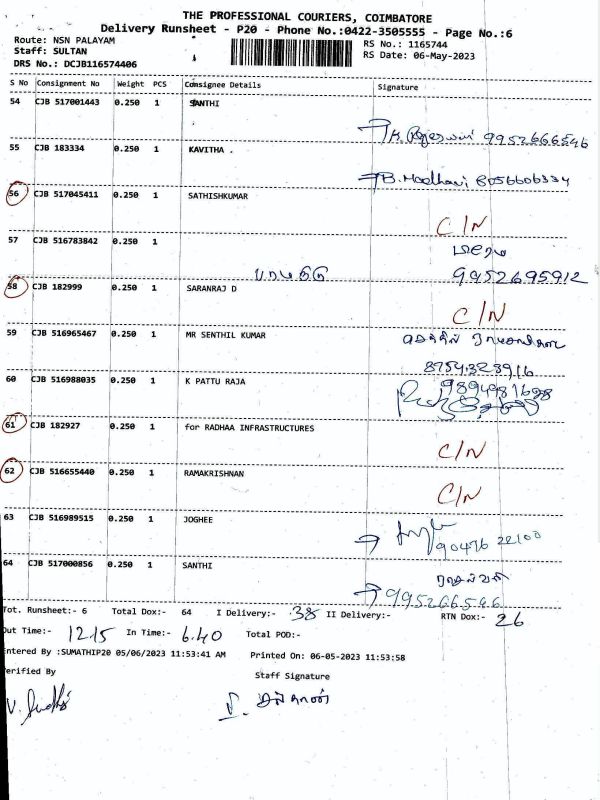 THE PROFESSIONAL COURIERS, COIMBATORE
Delivery Runsheet - P20 - Phone No.:0422-3505555 - Page No.:6
Route: NSN PALAYAM
RS No.: 1165744
Staff: SULTAN
RS Date: 06-May-2023
DRS No.: DCJB116574406
S No Consignment No Weight PCS Consignee Details Signature
54 CJB 517001443 0.250 1 SANTHI
9952666546
55 CJB 183334 0.250 1 KAVITHA .
B. Madhavi 8056606334
56 CJB 517045411 0.250 1 SATHISHKUMAR
C/N
57 CJB 516783842 0.250 1
9952695912
58 CJB 182999 0.250 1 SARANRAJ D
C/N
59 CJB 516965467 0.250 1 MR SENTHIL KUMAR
8754323916
60 CJB 516988035 0.250 1 K PATTU RAJA
61 CJB 182927 0.250 1 for RADHAA INFRASTRUCTURES
C/N
62 CJB 516655440 0.250 1 RAMAKRISHNAN
C/N
63 CJB 516989515 0.250 1 JOGHEE
90476 22100
64 CJB 517000856 0.250 1 SANTHI
995266546
Tot. Runsheet:- 6 Total Dox:- 64 I Delivery:- 38 II Delivery:- RTN Dox:- 26
Out Time:- 12.15 In Time:- 6.40 Total POD:-
Entered By :SUMATHIP20 05/06/2023 11:53:41 AM Printed On: 06-05-2023 11:53:58
Verified By Staff Signature